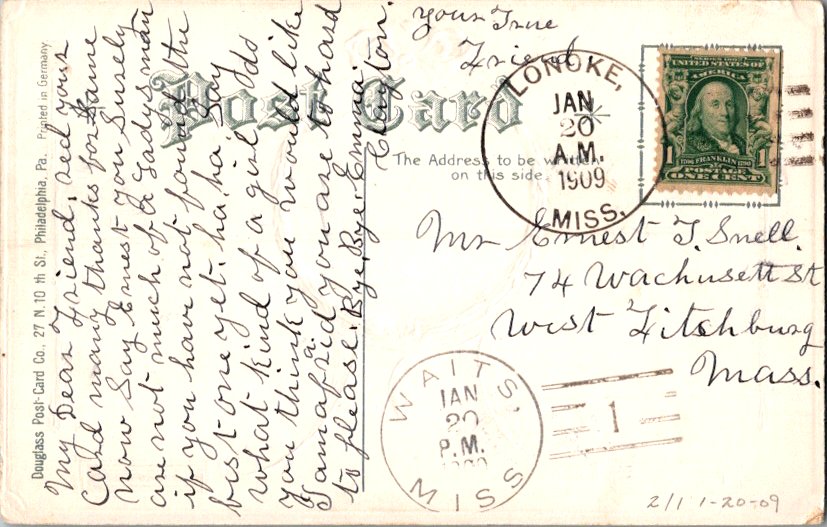 your True
Friend
My Dear Friend, red your
Card many thanks for same
now Say Ernest you Surely
are not much of a Ladys man
if you have not found the
bist one yet. ha, ha, Say
what kind of a girl do
you think you would like
I am afraid you are to hard
to please. Bye, Bye, Emma
Clayton.
Post Card
The Address to be written
on this side.
Douglass Post-Card Co., 27 N. 10 th St., Philadelphia, Pa. Printed in Germany
LONOKE,
JAN
20
A.M.
1909
MISS.
SERIES 1902
UNITED STATES OF
AMERICA
1 1706 FRANKLIN 1790 1
POSTAGE
ONE CENT
Mr Ernest T. Snell.
74 Wachusett St
West Fitchburg
Mass.
WAITS,
JAN
20
P.M.
1909
MISS
1
2/1 1-20-09